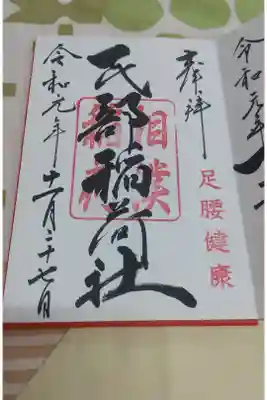 奉拝
足腰健康
民部稲荷社
相撲
稲荷
令和元年
十一月二十七日
令和元年